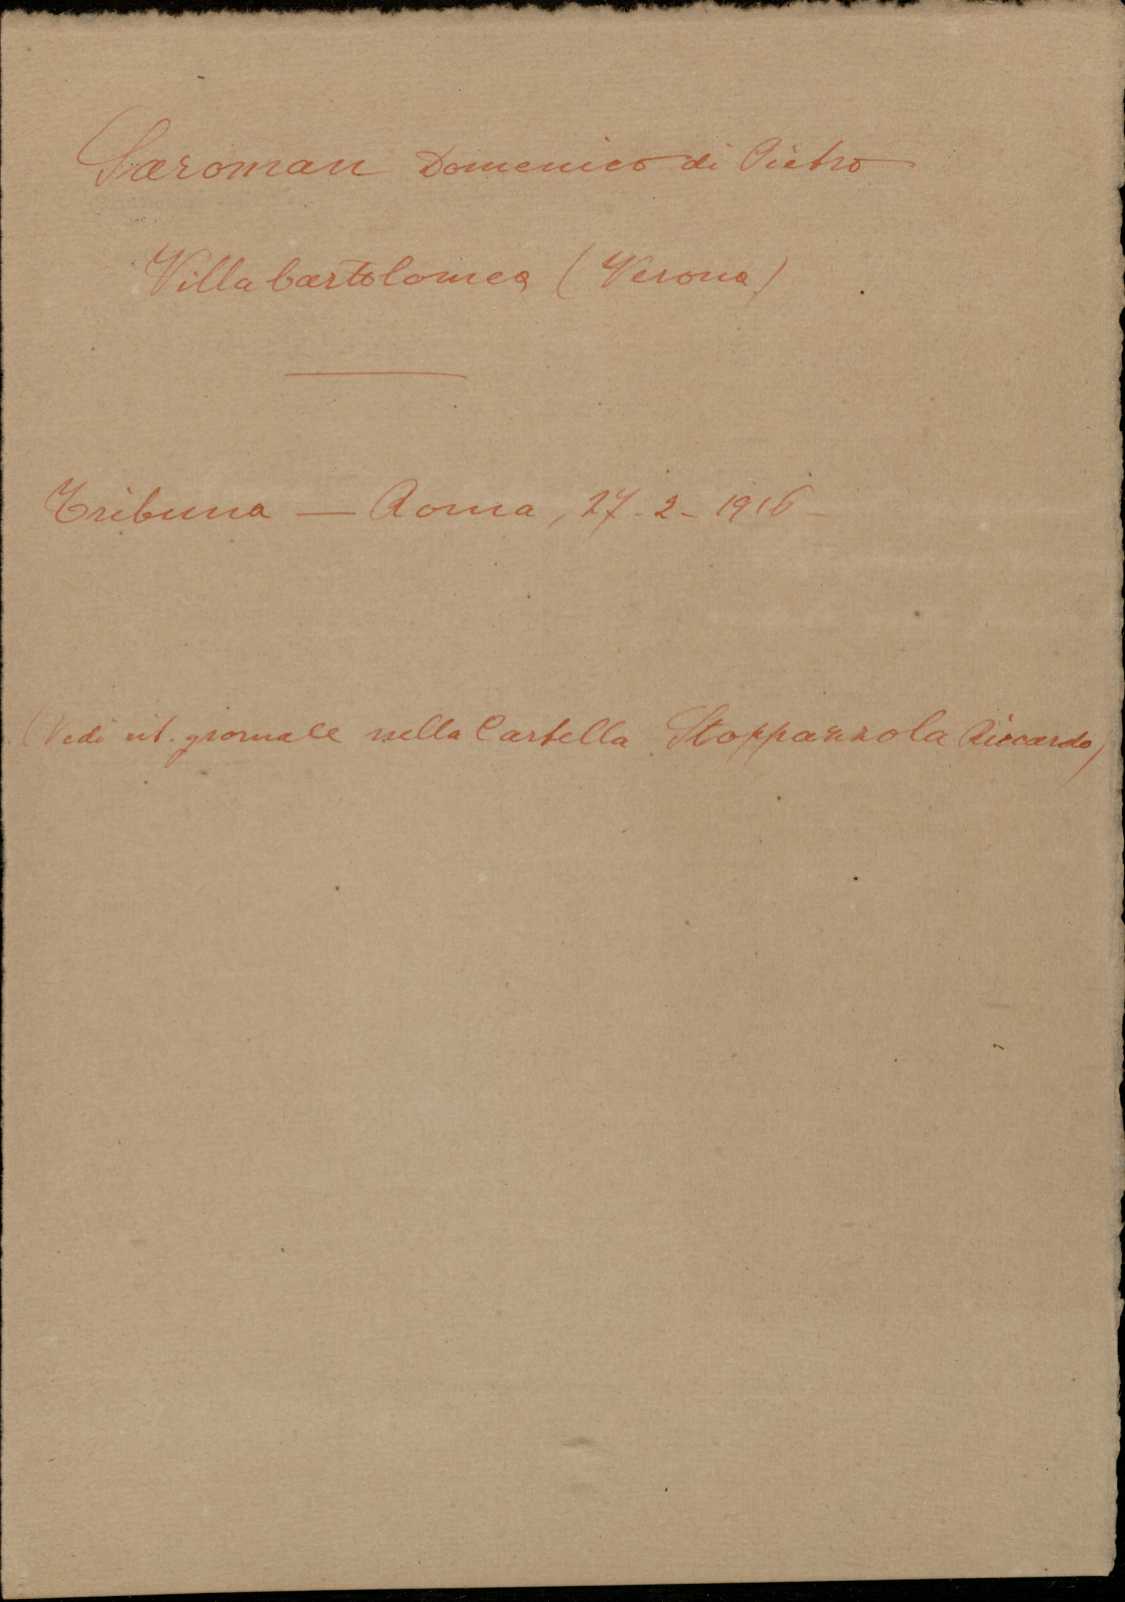 Saroman Domenico di Pietro
Villabartolomea (Verona)
Tribuna — Roma, 27-2-1916-
(Vedi cit. giornale nella Cartella Stoppazzola Riccardo)